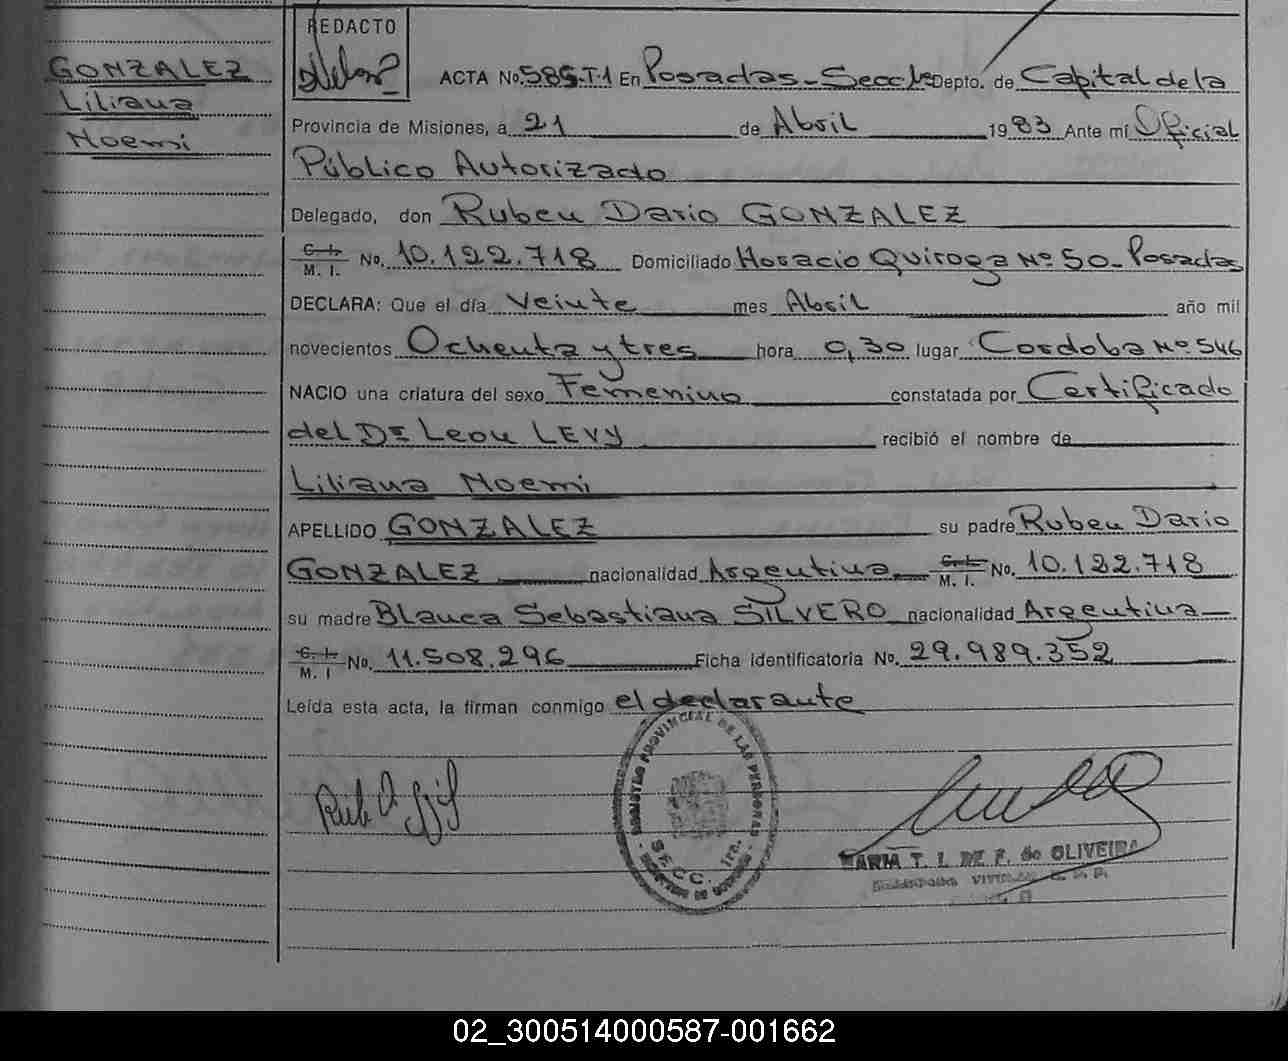 REDACTO
GONZALEZ
Liliana
Noemi
ACTA No. 585-T-1 En Posadas-Secc 1ª Depto. de Capital de la
Provincia de Misiones, a 21 de Abril 1983 Ante mí Oficial
Público Autorizado
Delegado, don Ruben Dario GONZALEZ
C. I. M. I. No. 10.122.718 Domiciliado Horacio Quiroga Nº 50-Posadas
DECLARA: Que el día Veinte mes Abril año mil
novecientos Ochenta y tres hora 0,30 lugar Cordoba Nº 546
NACIO una criatura del sexo Femenino constatada por Certificado
del Dr Leon LEVY recibió el nombre de
Liliana Noemi
APELLIDO GONZALEZ su padre Ruben Dario
GONZALEZ nacionalidad Argentina C. I. M. I. No. 10.122.718
su madre Blanca Sebastiana SILVERO nacionalidad Argentina
C. I. M. I No. 11.508.296 Ficha identificatoria No. 29.989.352
Leída esta acta, la firman conmigo el declarante
REGISTRO PROVINCIAL DE LAS PERSONAS
SECC. 1ra.
MARIA T. I. DE F. de OLIVEIRA
02_300514000587-001662